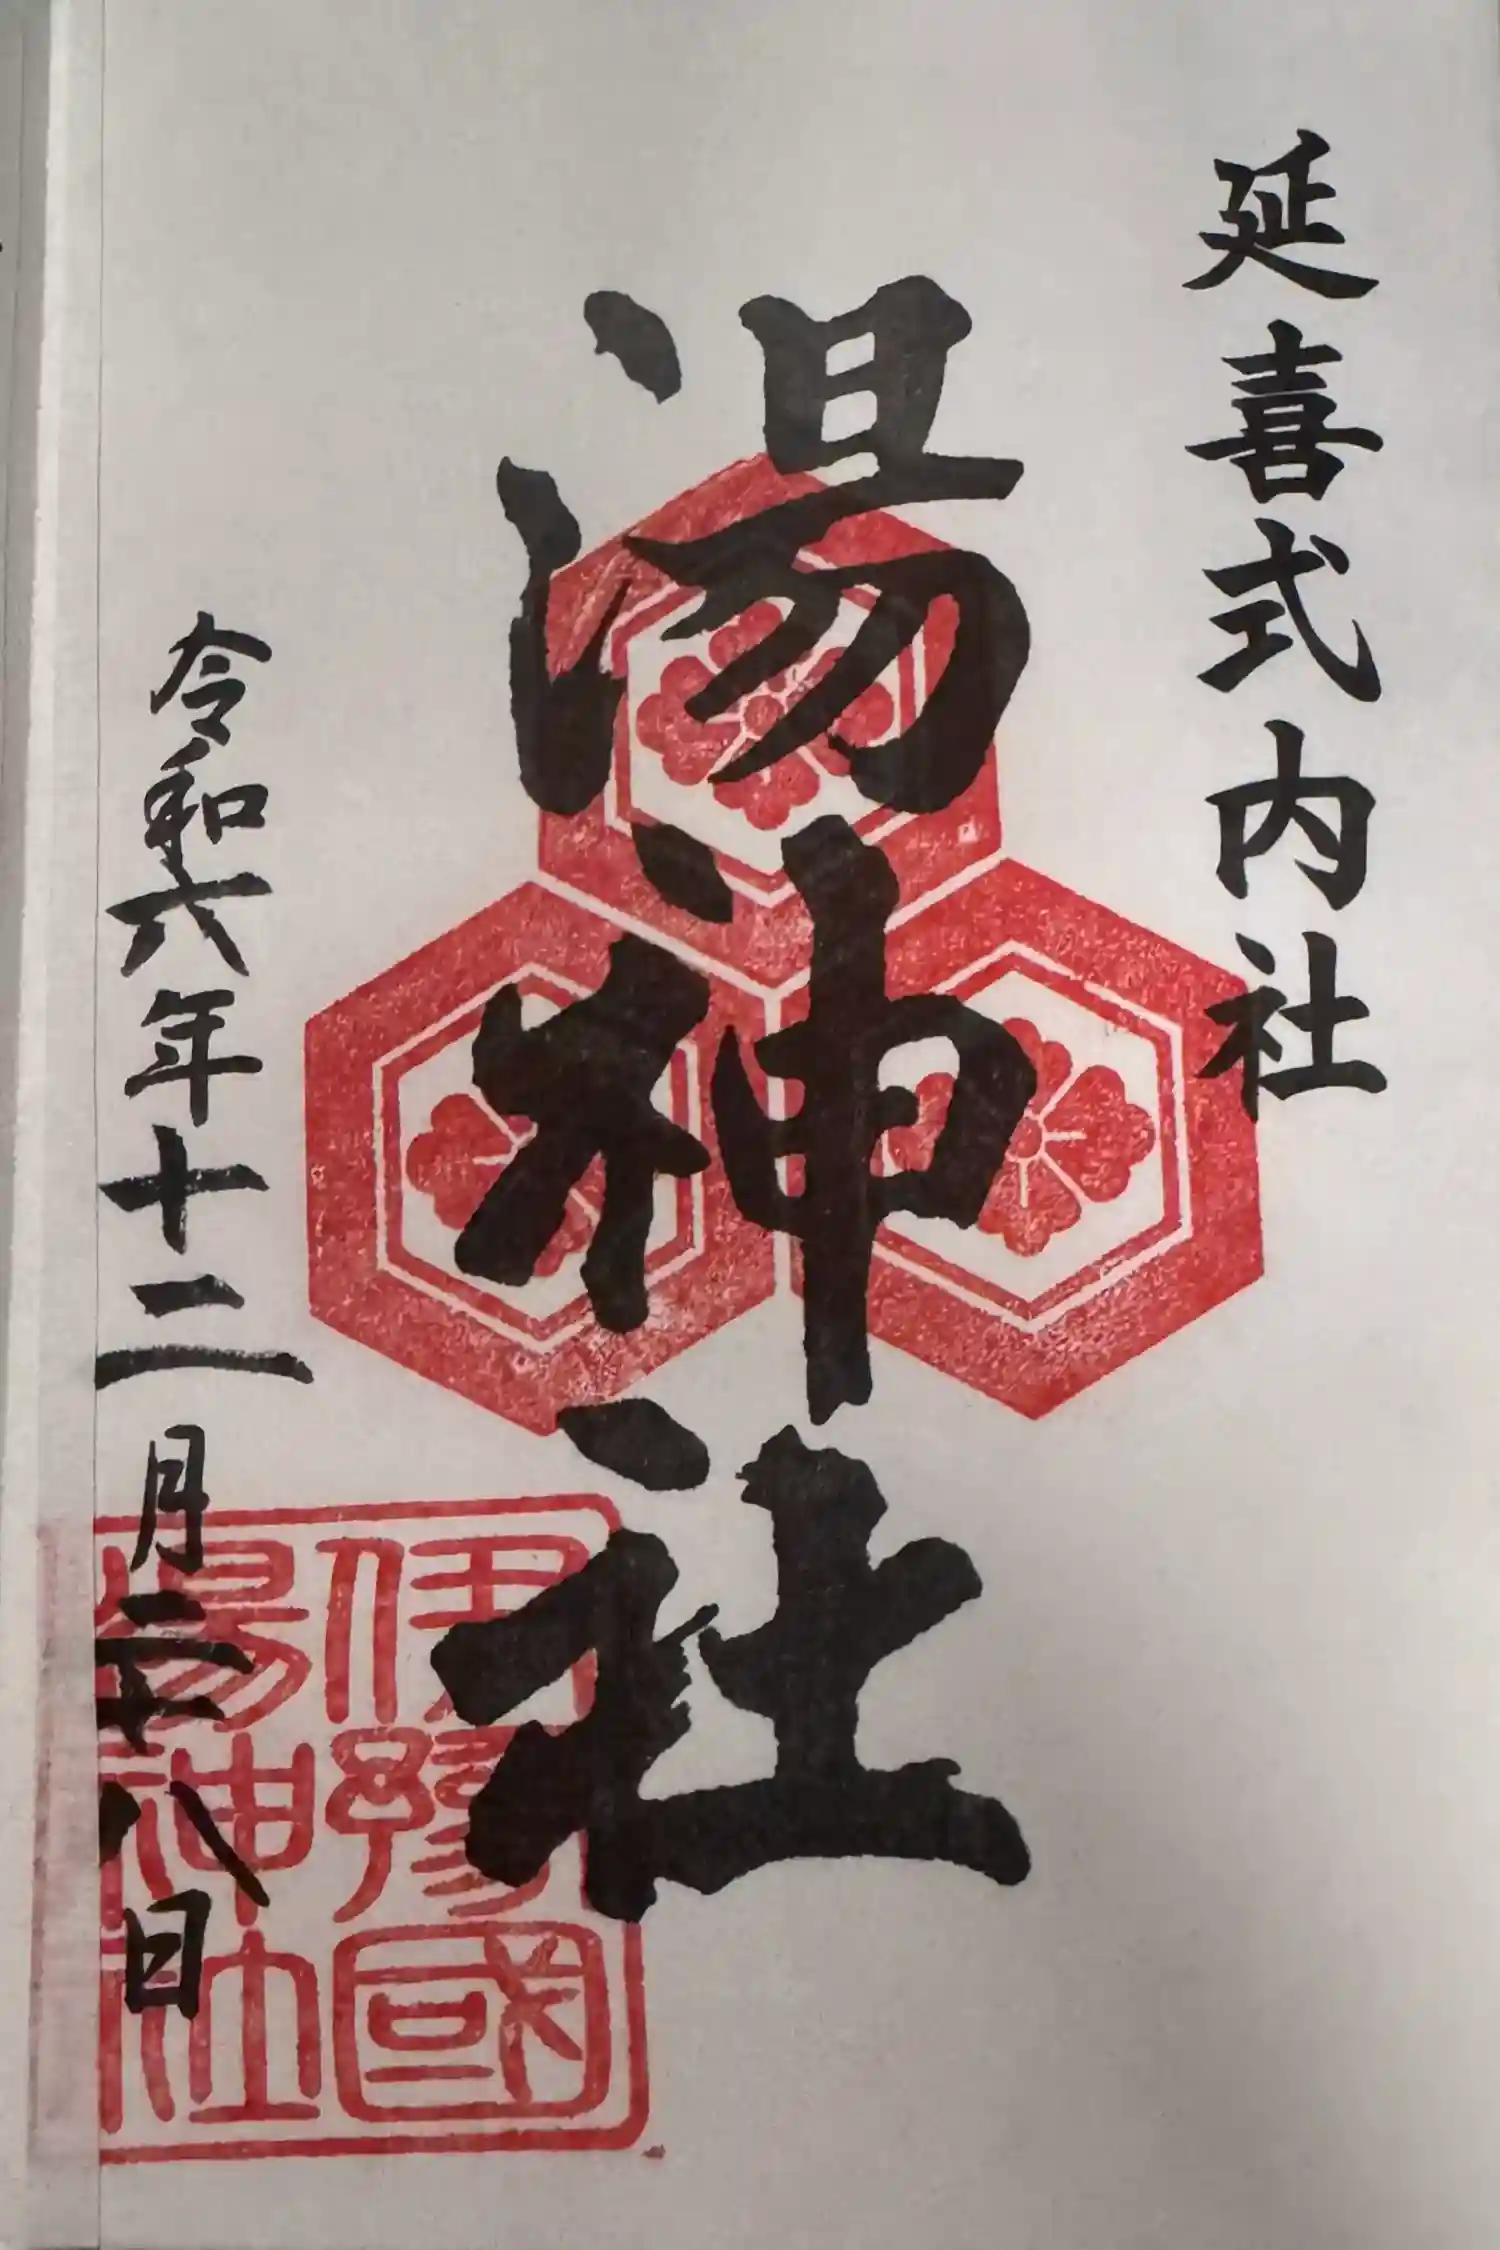 延喜式内社
湯神社
令和六年十二月二十八日
伊豫國
湯神社